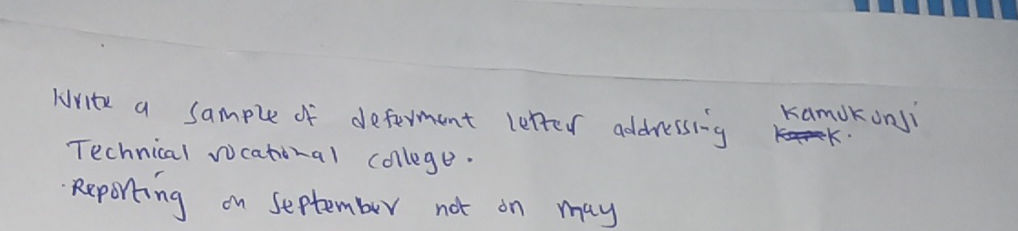 Write a sample of deferment letter addressing Kamukunji
Technical vocational college.
Reporting on September not on may